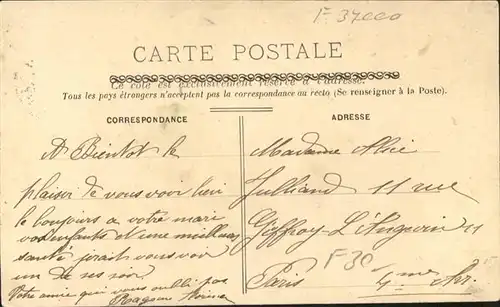 F 37000
CARTE POSTALE
Ce côté est exclusivement réservé à l'adresse.
Tous les pays étrangers n'acceptent pas la correspondance au recto (Se renseigner à la Poste).
CORRESPONDANCE
A Bientot le
plaisir de vous voir bien
le toujours a votre mari
vos enfants et une meilleure
santé
un de ses
Votre amie qui vous oublie pas
ADRESSE
Madame Alice
Julliand 11 rue
Gyffroy-L'Angevin 11
F 30
Paris 4eme Arr.